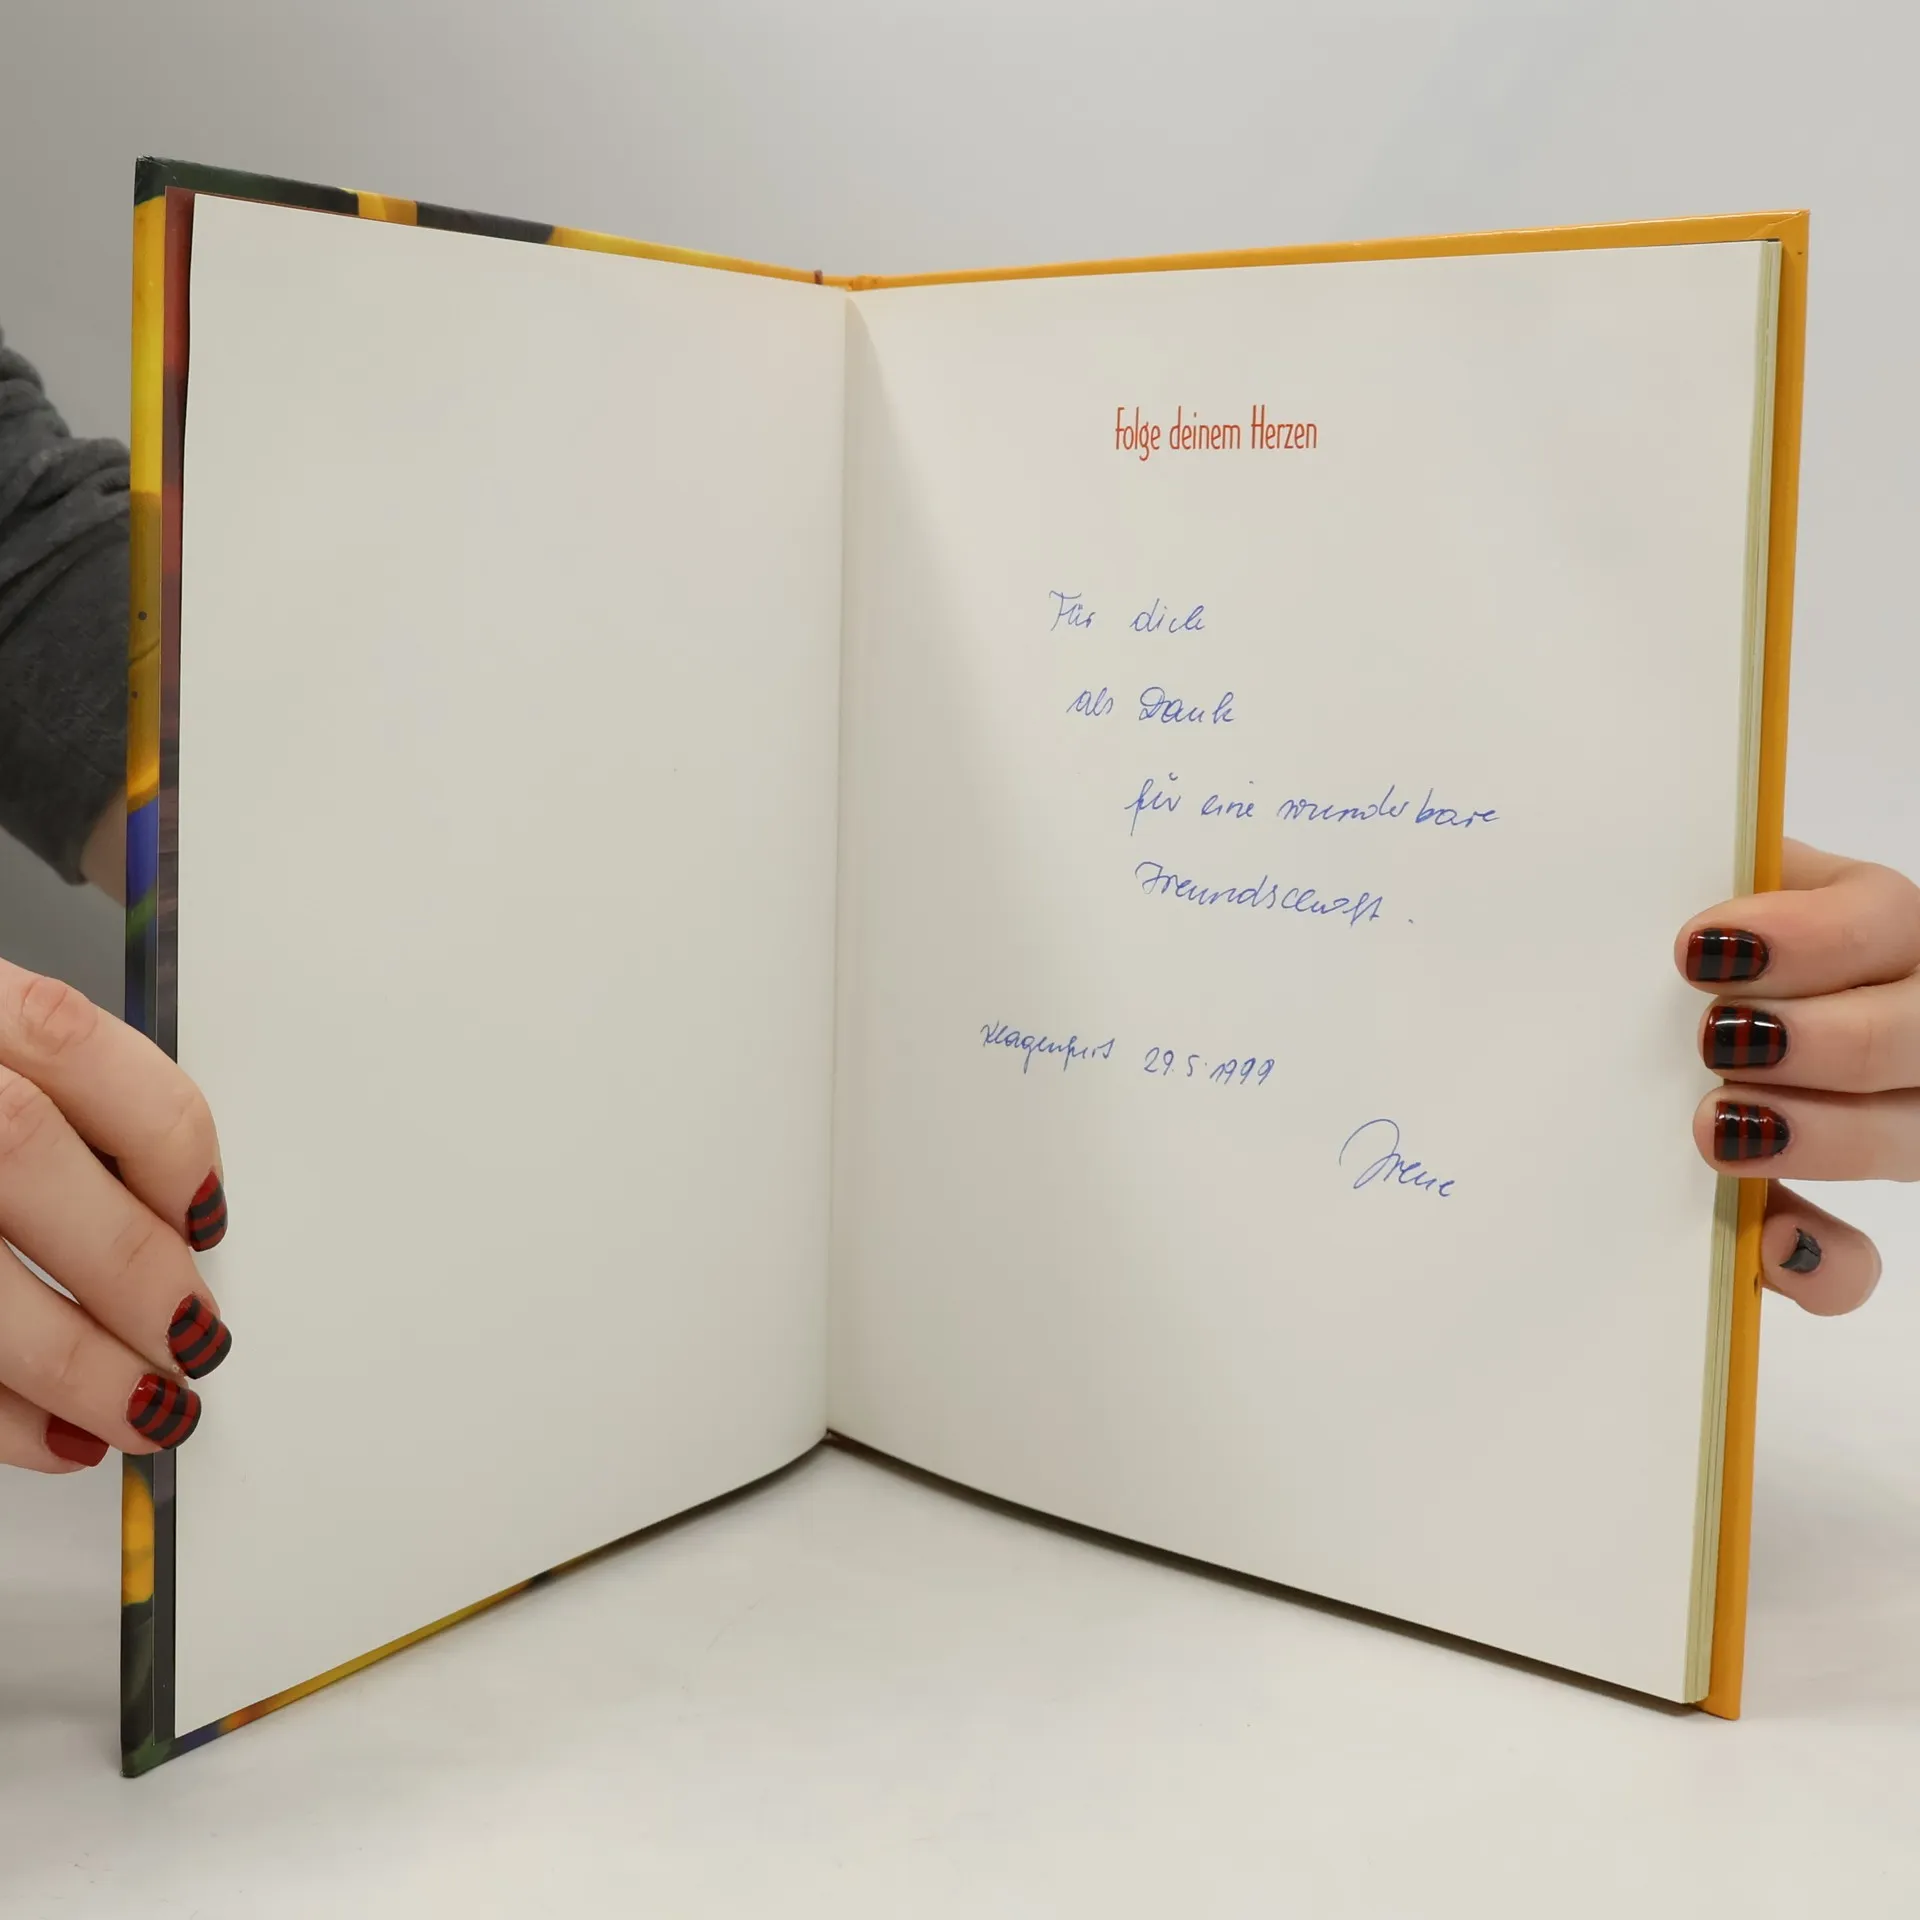 Folge deinem Herzen
Für dich
als Dank
für eine wunderbare
Freundschaft.
Klagenfurt 29.5.1999
Irene